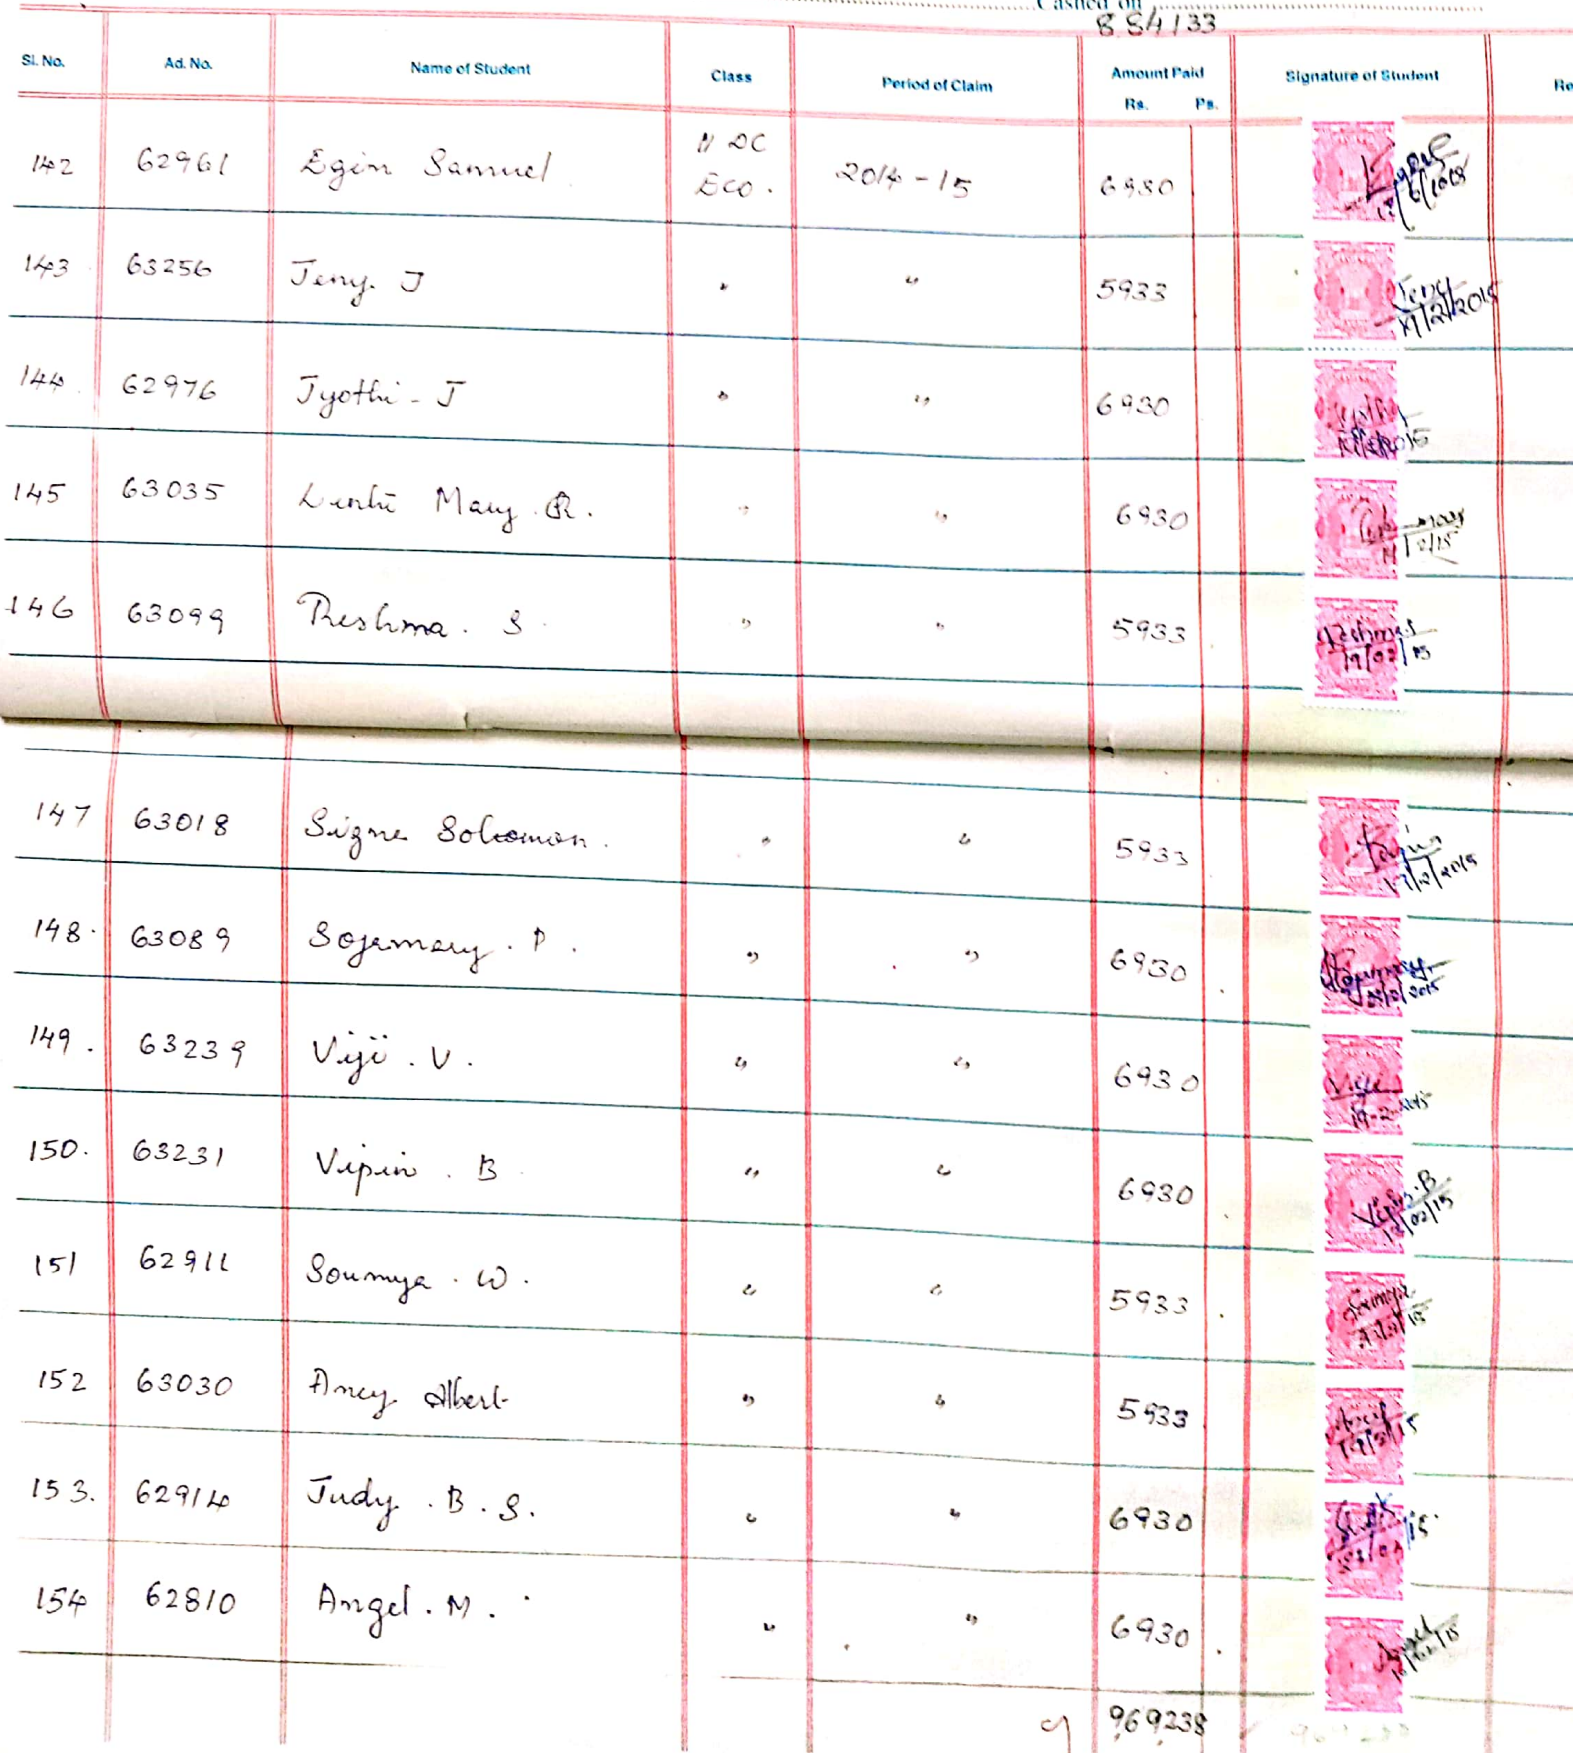 Cashed on
884133
Sl. No. Ad. No. Name of Student Class Period of Claim Amount Paid Signature of Student Re
Rs. Ps.
142 62961 Egin Samuel II DC Eco. 2014-15 6930
143 63256 Jeny. J " " 5933 Jeny 19/2/2015
144 62976 Jyothi - J " " 6930
145 63035 Mary . R. " " 6930
146 63099 Reshma. S " " 5933 Reshma S 19/02/15
147 63018 Solomon. " " 5933
148. 63089 Sojamary . P. " " 6930
149. 63239 Viji . V. " " 6930 Viji 19-2-2015
150. 63231 Vipin . B " " 6930 Vipin.B 19/02/15
151 62911 Soumya . W. " " 5933 Soumya
152 63030 Ancy Albert " " 5933 Ancy
153. 62914 Judy . B . S. " " 6930
154 62810 Angel . M. " " 6930 Angel
969238